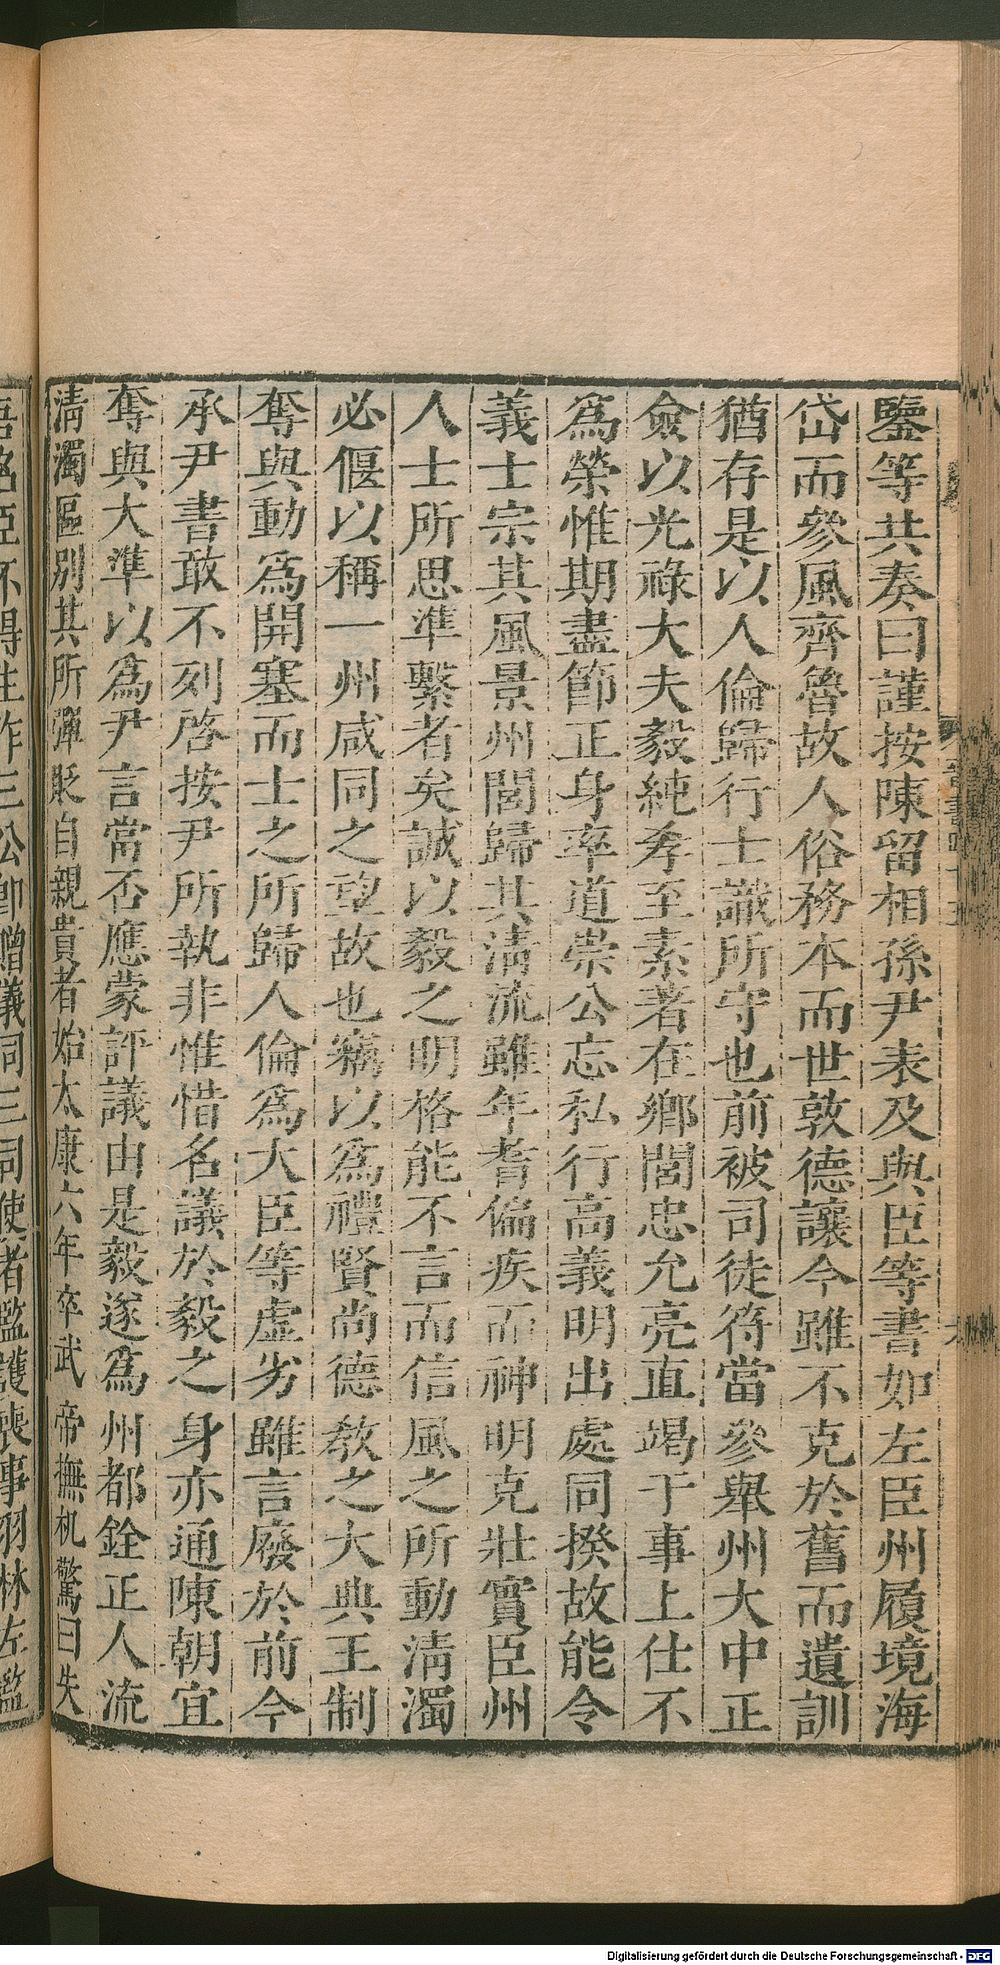 鑒等共奏曰謹按陳留相孫尹表及與臣等書如左臣州履境海
岱而參風齊魯故人俗務本而世敦德讓今雖不克於舊而遺訓
猶存是以人倫歸行士識所守也前被司徒符當參舉州大中正
僉以光祿大夫毅純孝至素著在鄉閭忠允亮直竭于事上仕不
為榮惟期盡節正身率道崇公忘私行高義明出處同揆故能令
義士宗其風景州閭歸其清流雖年耆偏疾而神明克壯實臣州
人士所思準繫者矣誠以毅之明格能不言而信風之所動清濁
必偃以稱一州咸同之望故也竊以為禮賢尚德教之大典王制
奪與動為開塞而士之所歸人倫為大臣等虛劣雖言廢於前今
承尹書敢不列啓按尹所執非惟惜名議於毅之身亦通陳朝宜
奪與大準以為尹言當否應蒙評議由是毅遂為州都銓正人流
清濁區別其所彈貶自親貴者始太康六年卒武帝撫机驚曰失
吾名臣不得生作三公即贈儀同三司使者監護喪事羽林左監
Digitalisierung gefördert durch die Deutsche Forschungsgemeinschaft - DFG